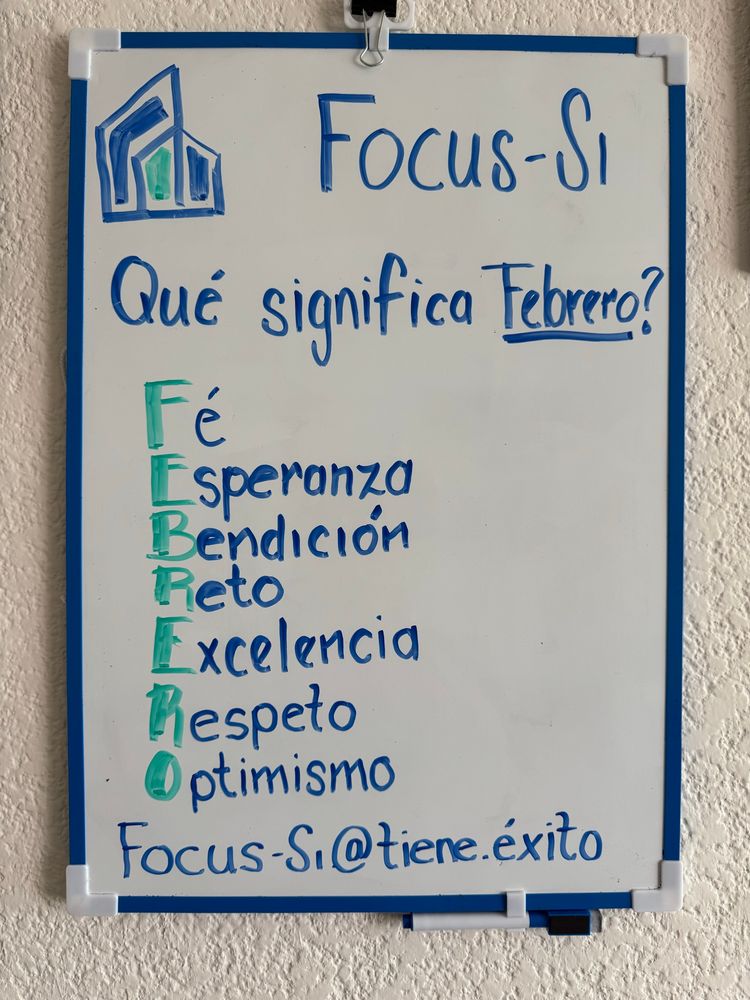 Focus-Si
Qué significa Febrero?
Fé
Esperanza
Bendición
Reto
Excelencia
Respeto
Optimismo
Focus-Si@tiene.éxito